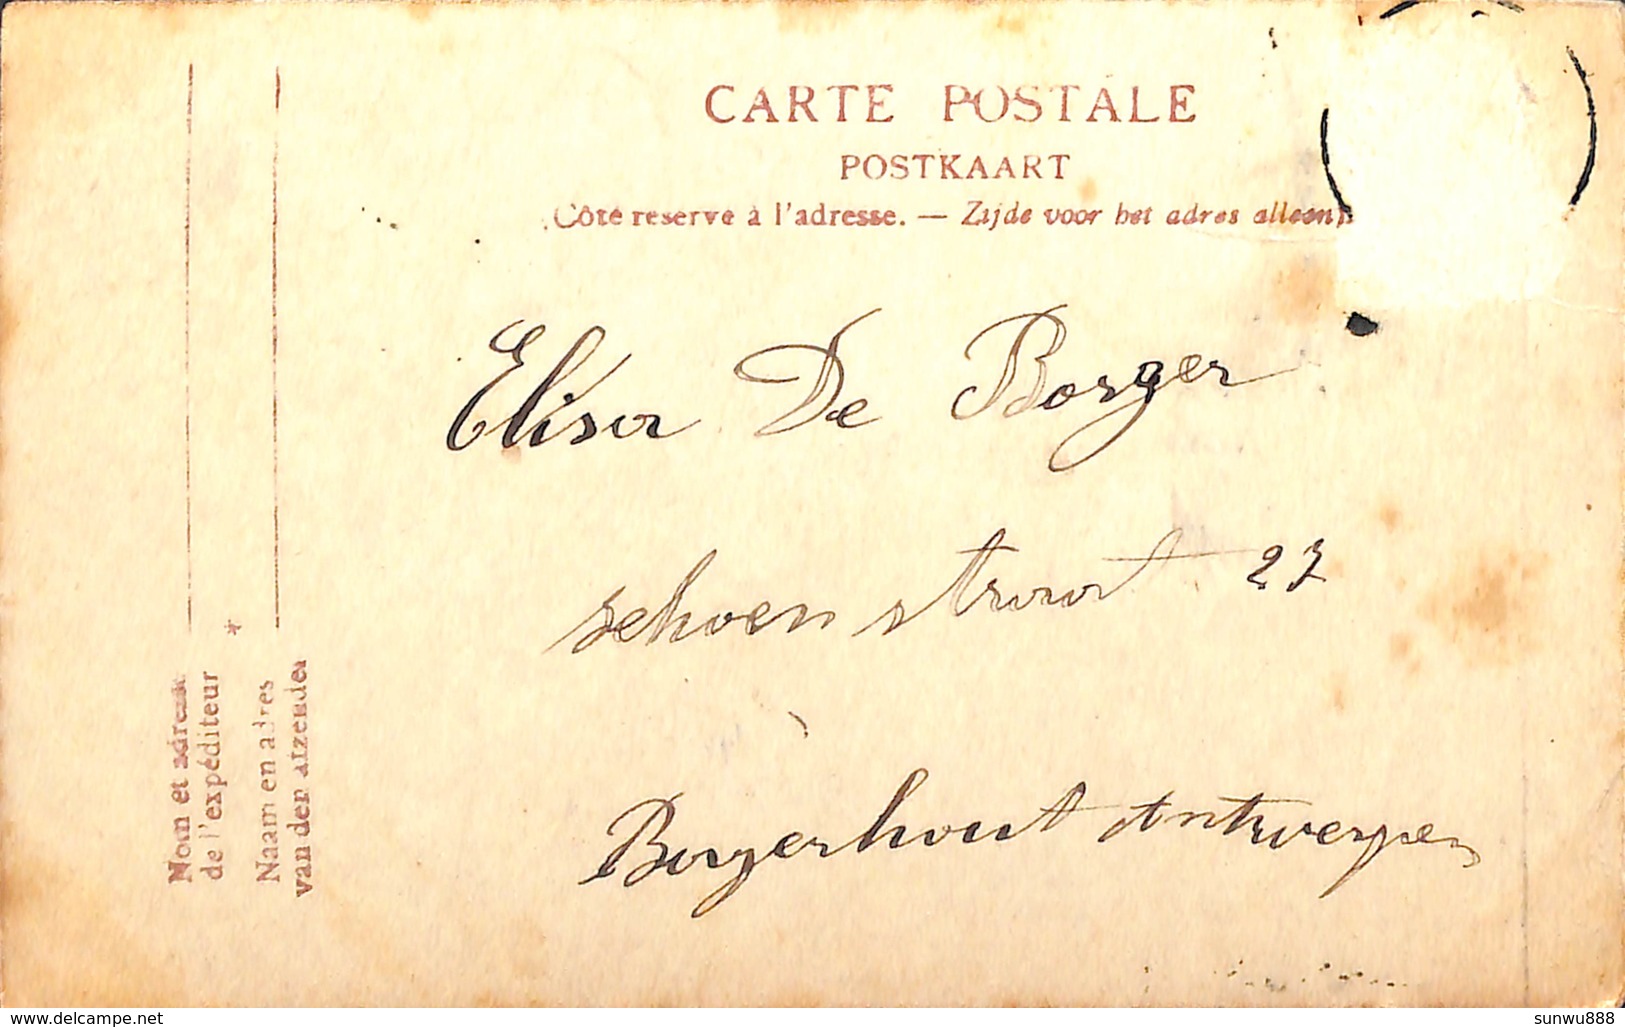 CARTE POSTALE
POSTKAART
(Côté réservé à l'adresse. — Zijde voor het adres alleen)
Elisa De Borger
schoen straat 27
Borgerhout Antwerpen
Nom et adresse
de l'expéditeur
Naam en adres
van den afzender
www.delcampe.net
sunwu888